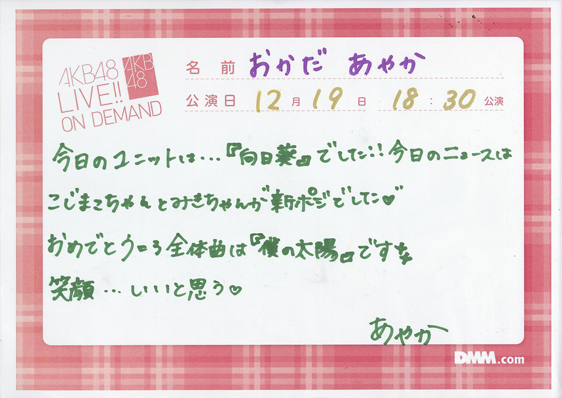 AKB48
LIVE!!
ON DEMAND
AKB
48
名前 おかだ あやか
公演日 12月19日 18:30公演
今日のユニットは…『向日葵』でした!!今日のニュースは
こじまこちゃんとみきちゃんが新ポジでした♡
おめでとう 全体曲は『僕の太陽』ですな
笑顔…いいと思う♡
あやか
DMM.com